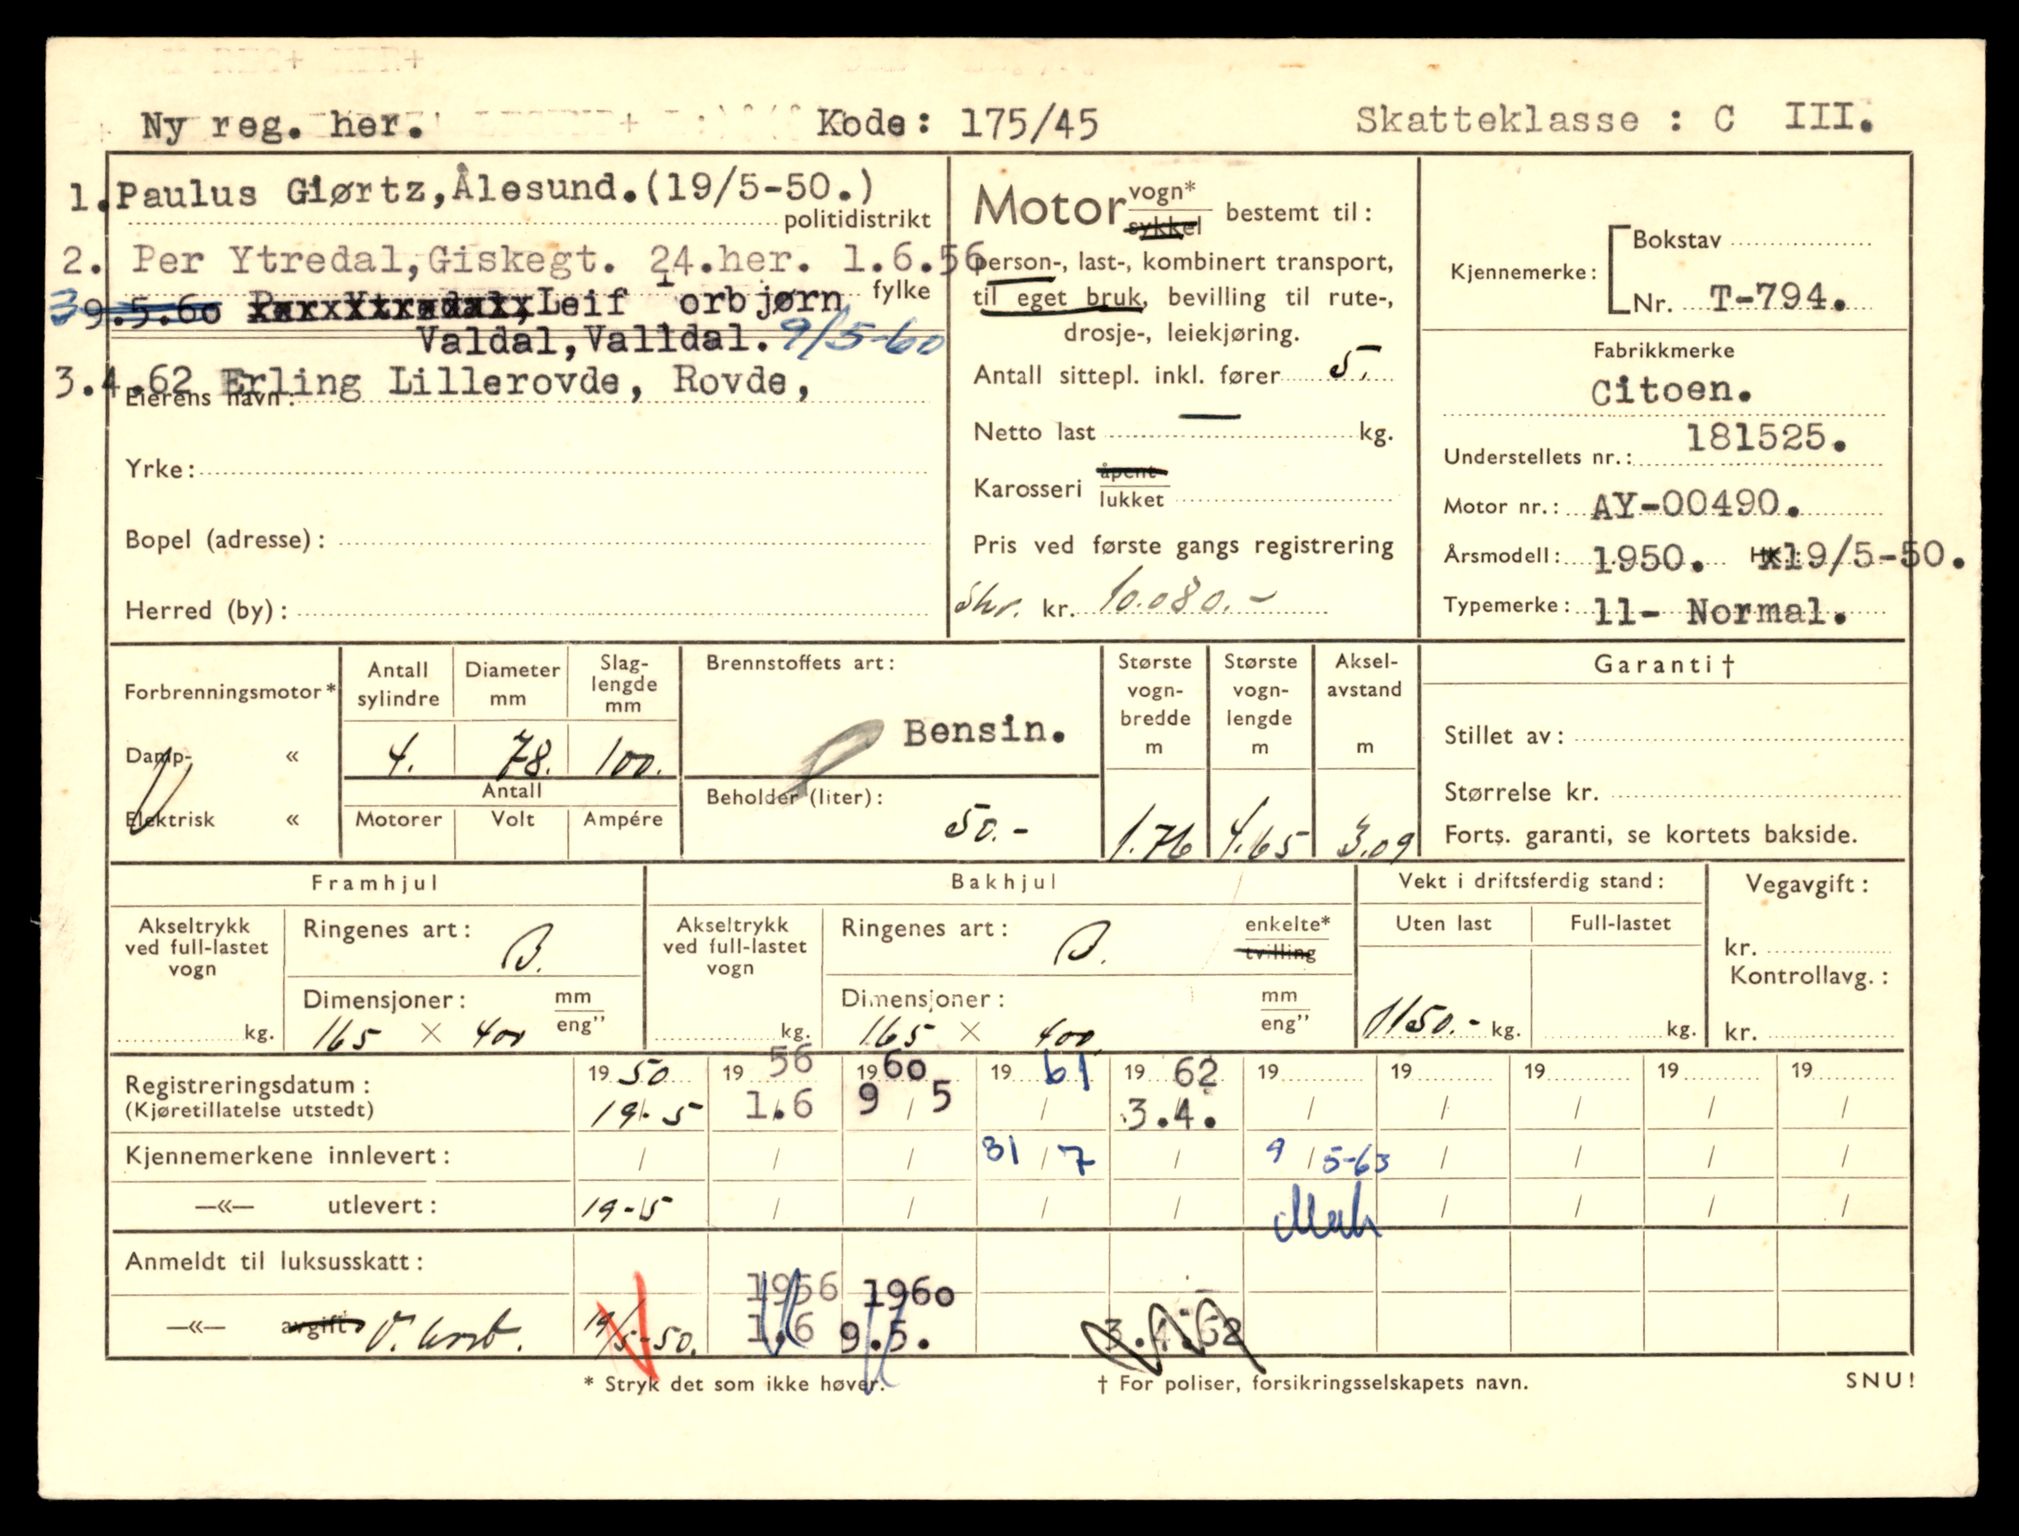 Ny reg. her. Kode: 175/45 Skatteklasse : C III.
1. Paulus Giørtz, Ålesund. (19/5-50.)
politidistrikt
2. Per Ytredal, Giskegt. 24. her. 1.6.56
fylke
3 9.5.60 Per Ytredal, Leif Torbjørn
Valdal, Valldal. 9/5-60
3.4.62 Erling Lillerovde, Rovde,
Eierens navn:
Yrke:
Bopel (adresse):
Herred (by):
Motor vogn* sykkel bestemt til:
person-, last-, kombinert transport,
til eget bruk, bevilling til rute-,
drosje-, leiekjøring.
Antall sittepl. inkl. fører 5.
Netto last — kg.
Karosseri åpent lukket
Pris ved første gangs registrering
kr. 10.080.-
Kjennemerke: Bokstav
Nr. T-794.
Fabrikkmerke
Citoen.
Understellets nr.: 181525.
Motor nr.: AY-00490.
Årsmodell: 1950. HK.: x19/5-50.
Typemerke: 11- Normal.
Forbrenningsmotor*
Damp- «
Elektrisk «
Antall sylindre
4.
Diameter mm
78.
Slaglengde mm
100.
Antall
Motorer Volt Ampére
Brennstoffets art:
Bensin.
Beholder (liter):
50.-
Største vognbredde m
1.76
Største vognlengde m
4.65
Akselavstand m
3.09
Garanti†
Stillet av:
Størrelse kr.
Forts. garanti, se kortets bakside.
Framhjul
Akseltrykk ved full-lastet vogn
kg.
Ringenes art: B.
Dimensjoner: mm eng”
165 × 400
Bakhjul
Akseltrykk ved full-lastet vogn
kg.
Ringenes art: B. enkelte* tvilling
Dimensjoner: mm eng”
165 × 400
Vekt i driftsferdig stand:
Uten last Full-lastet
1150.- kg. kg.
Vegavgift:
kr.
Kontrollavg.:
kr.
Registreringsdatum: 19 50 19 56 19 60 19 61 19 62 19 19 19 19 19
(Kjøretillatelse utstedt) 19.5 1.6 9/5 / 3.4. / / / / /
Kjennemerkene innlevert: / / / 31/7 / 9/5-63 / / / /
—«— utlevert: 19-5 / / / / / / / /
Anmeldt til luksusskatt: 1956 1960
—«— avgift 19/5-50. 1.6 9.5. 3.4.62
* Stryk det som ikke høver. † For poliser, forsikringsselskapets navn. SNU!